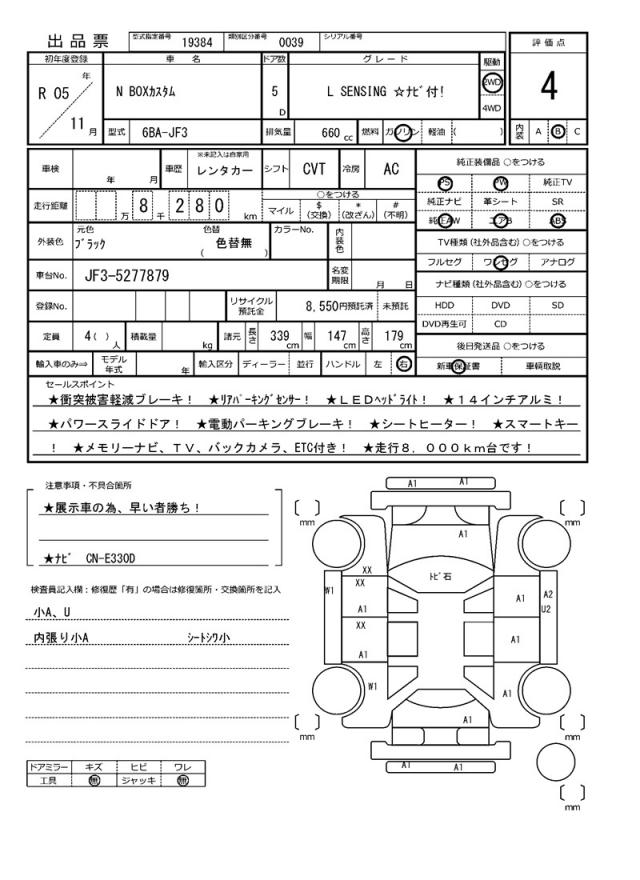 出品票 型式指定番号 19384 類別区分番号 0039 シリアル番号
初年度登録 車名 ドア数 グレード 駆動 評価点
R 05 年 11 月 N BOXカスタム 5 D L SENSING ☆ナビ付! 2WD 4WD 4
型式 6BA-JF3 排気量 660 cc 燃料 ガソリン 軽油 ( ) 内装 A B C
車検 年 月 車歴 ※未記入は自家用 レンタカー シフト CVT 冷房 AC 純正装備品 ○をつける
PS PW 純正TV
走行距離 万 8 千 2 8 0 km ○をつける
マイル $ (交換) * (改ざん) # (不明)
純正ナビ 革シート SR
純正AW エアB ABS
外装色 元色 ブラック 色替 色替無 ( ) カラーNo. 内装色
TV種類 (社外品含む) ○をつける
フルセグ ワンセグ アナログ
車台No. JF3-5277879 名変期限 月 日
ナビ種類 (社外品含む) ○をつける
登録No. リサイクル預託金 8,550円預託済 未預託
HDD DVD SD
DVD再生可 CD
定員 4 ( ) 人 積載量 kg 諸元 長さ 339 cm 幅 147 cm 高さ 179 cm
後日発送品 ○をつける
輸入車のみ⇒ モデル年式 年 輸入区分 ディーラー 並行 ハンドル 左 右 新車保証書 車輌取説
セールスポイント
★衝突被害軽減ブレーキ! ★リアパーキングセンサー! ★LEDヘッドライト! ★14インチアルミ!
★パワースライドドア! ★電動パーキングブレーキ! ★シートヒーター! ★スマートキー
! ★メモリーナビ、TV、バックカメラ、ETC付き! ★走行8,000km台です!
注意事項・不具合箇所
★展示車の為、早い者勝ち!
★ナビ CN-E330D
検査員記入欄:修復歴「有」の場合は修復箇所・交換箇所を記入
小A、U
内張り小A シートシワ小
ドアミラー キズ ヒビ ワレ
工具 無 ジャッキ 無
A1 A1
mm mm
A1
XX トビ石
W1 XX A1 A2
A1 U2
XX A1
A1
W1 A1
A1
mm mm
A1 A1
mm